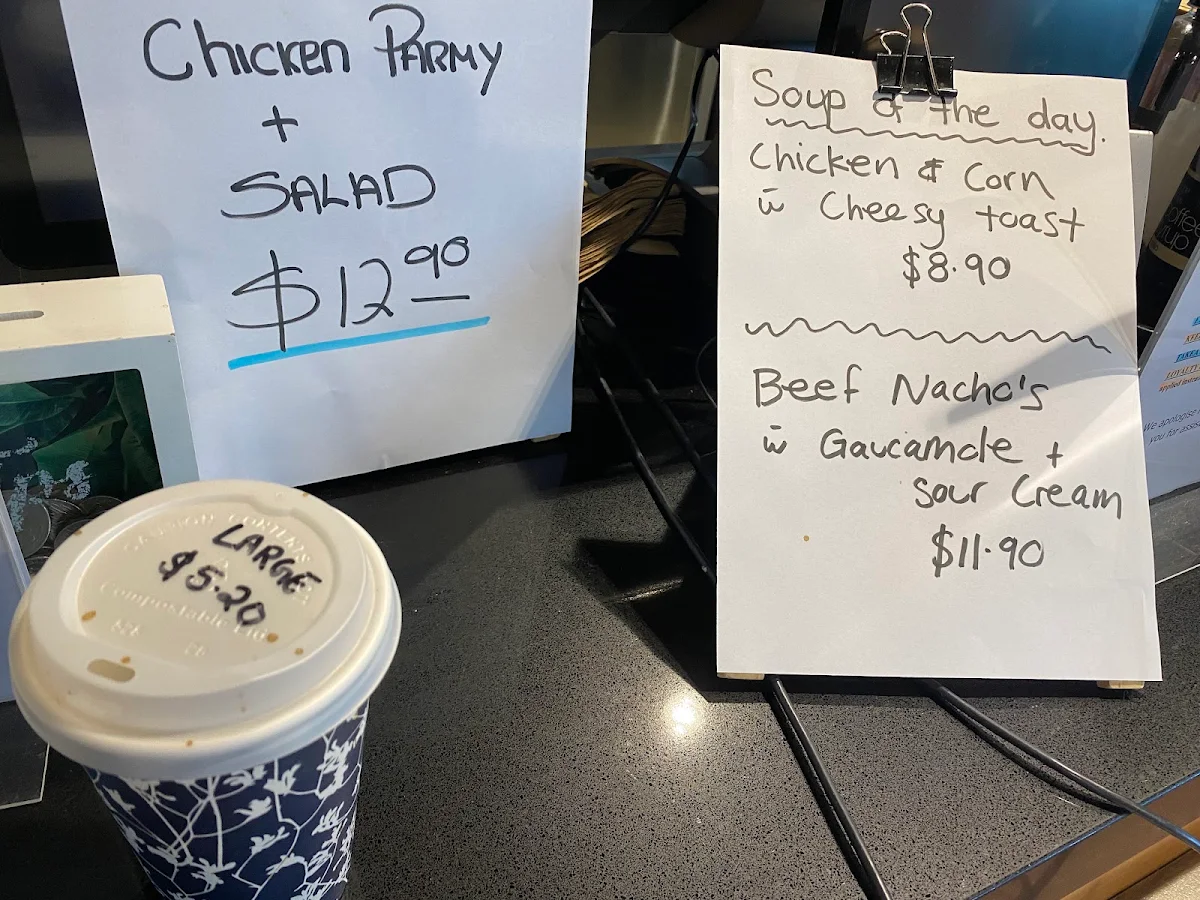 Chicken PARMY
+
SALAD
$12.90
Soup of the day.
Chicken & Corn
w̄ Cheesy toast
$8.90
Beef Nacho's
w̄ Gaucamole +
Sour Cream
$11.90
LARGE
$5.20
Compostable Lid
We apologise
you for assis